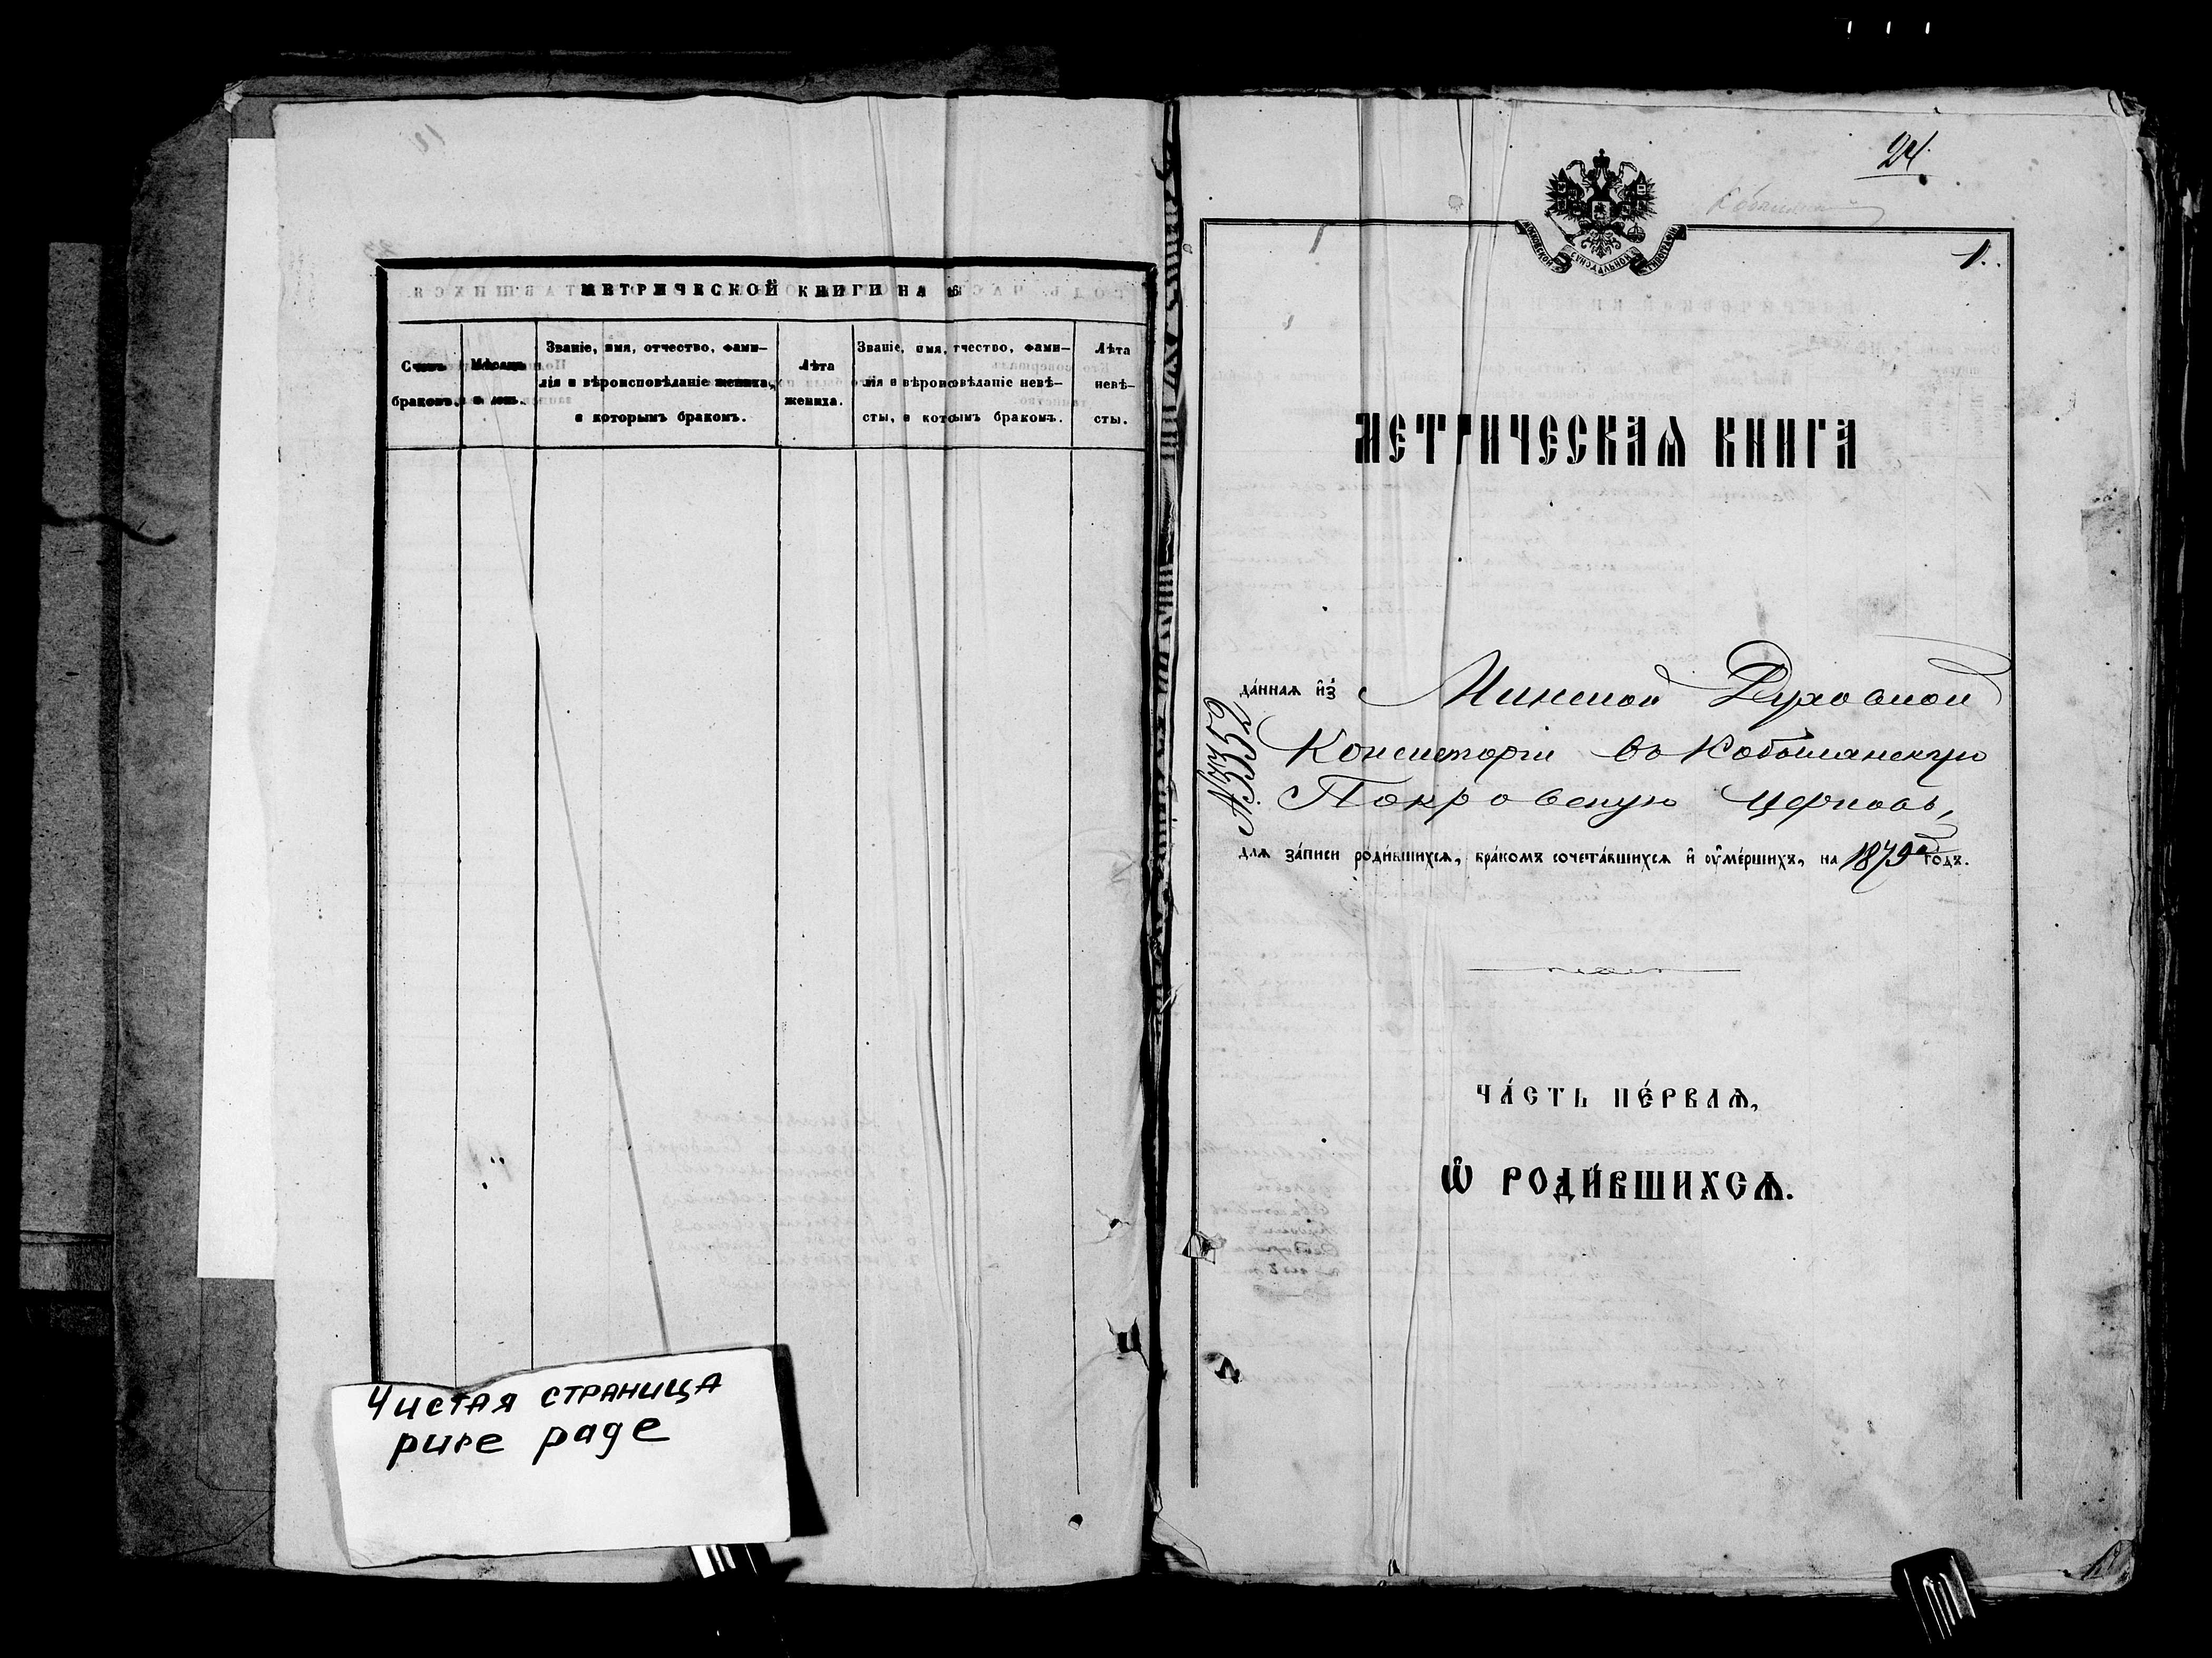 МЕТРИЧЕСКОЙ КНИГИ НА 18
Счетъ браковъ.
Мѣсяцъ и день.
Званіе, имя, отчество, фами-
лія и вѣроисповѣданіе жениха,
и которымъ бракомъ.
Лѣта
жениха.
Званіе, имя, тчество, фами-
лія и вѣроисовѣданіе невѣ-
сты, и котоымъ бракомъ.
Лѣта
невѣ-
сты.
Чистая страница
pure page
24.
1.
МОСКОВСКОЙ СѴНОДАЛЬНОЙ ТИПОГРАФІИ
МЕТРИЧЕСКАѦ КНИГА
да́ннаѧ и҆з̾ Минской Духовной
Консисторіи въ Кобыланскую
Покровскую церковь,
№ 3352
длѧ за́писи роди́вшихсѧ, бра́комъ сочета́вшихсѧ и҆ ᲂу҆ме́ршихъ, на 1879й годъ.
ЧА́СТЬ ПЕ́РВАѦ,
Ѽ РОДИ́ВШИХСѦ.